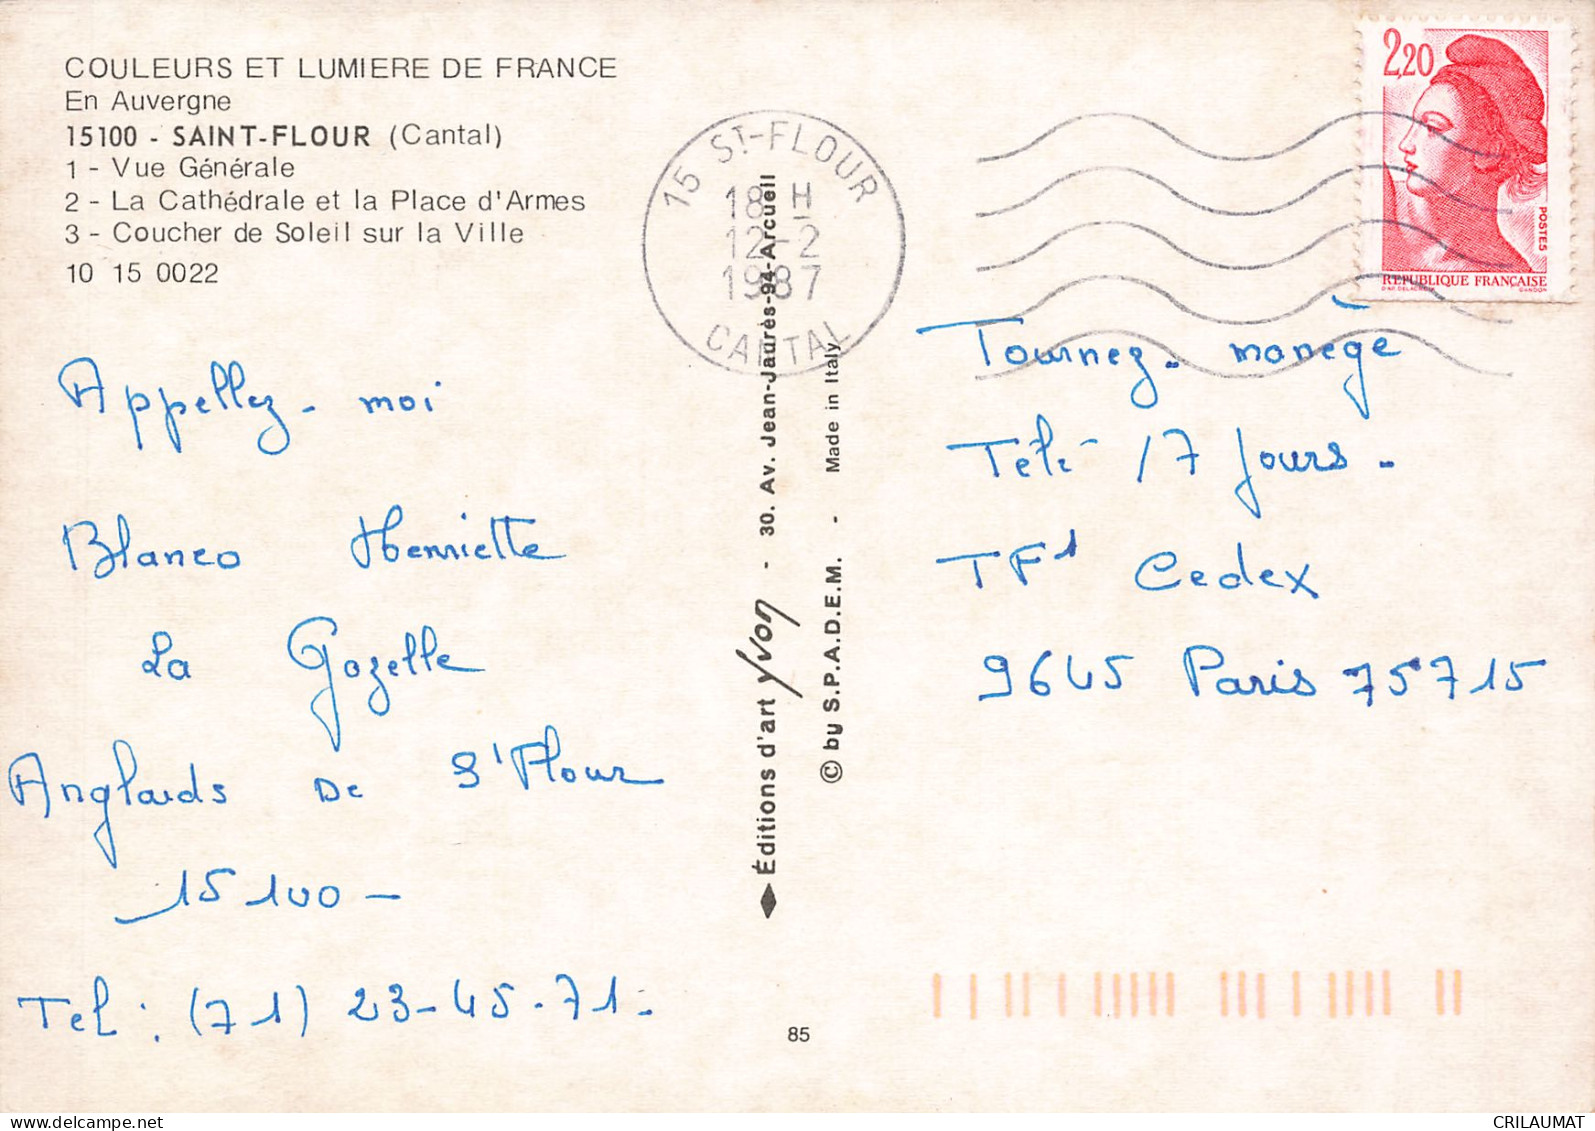 COULEURS ET LUMIERE DE FRANCE
En Auvergne
15100 - SAINT-FLOUR (Cantal)
1 - Vue Générale
2 - La Cathédrale et la Place d'Armes
3 - Coucher de Soleil sur la Ville
10 15 0022
15 ST-FLOUR
18 H
12-2
1987
CANTAL
2,20
POSTES
REPUBLIQUE FRANÇAISE
Appellez-moi
Blanco Henriette
La Gazelle
Anglards De St Flour
15100 -
Tel : (71) 23-45-71.
♦ Éditions d'art yvon - 30. Av. Jean-Jaurès-94-Arcueil
© by S.P.A.D.E.M. - Made in Italy
Tournez. manège
Télé 17 Jours.
TF1 Cedex
9645 Paris 75715
85
delcampe.net
CRILAUMAT